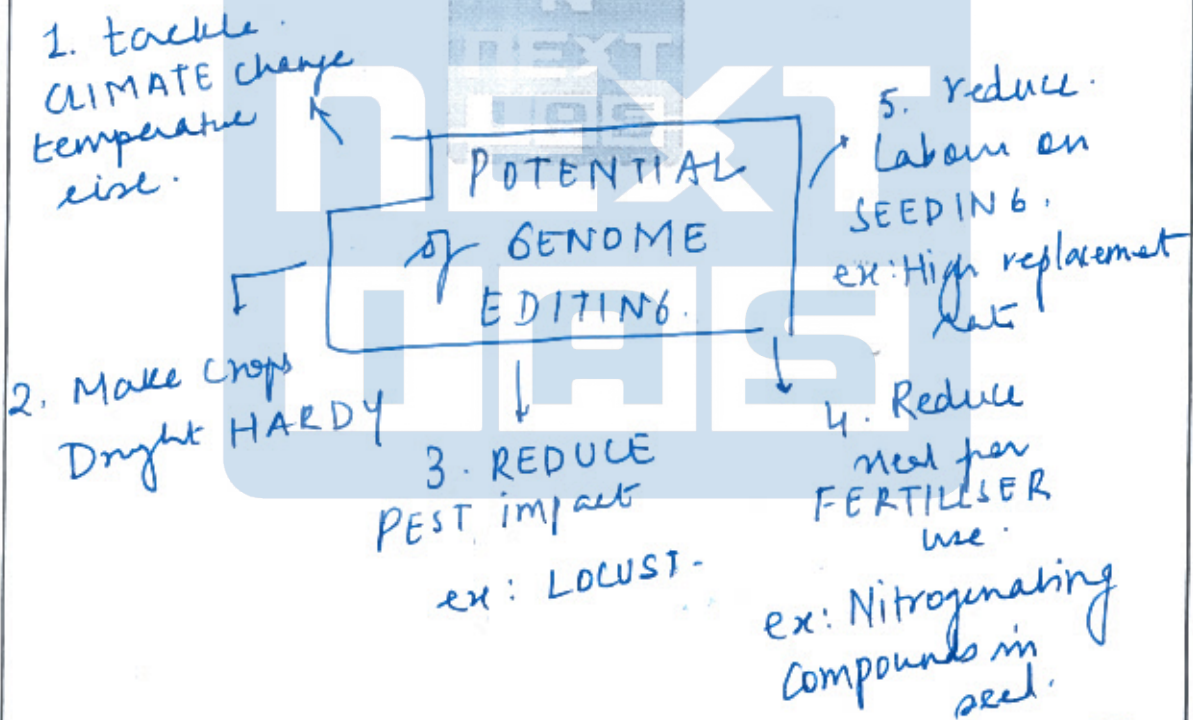 1. tackle.
CLIMATE change
temperature
rise.
POTENTIAL
of GENOME
EDITING.
2. Make Crops
Drught HARDY
3. REDUCE
PEST impact
ex: LOCUST.
4. Reduce
need for
FERTILISER
use.
ex: Nitrogenating
Compounds in
seed.
5. reduce.
Labour on
SEEDING.
ex: High replacement
rate
N
NEXT
IAS
NEXT
IAS